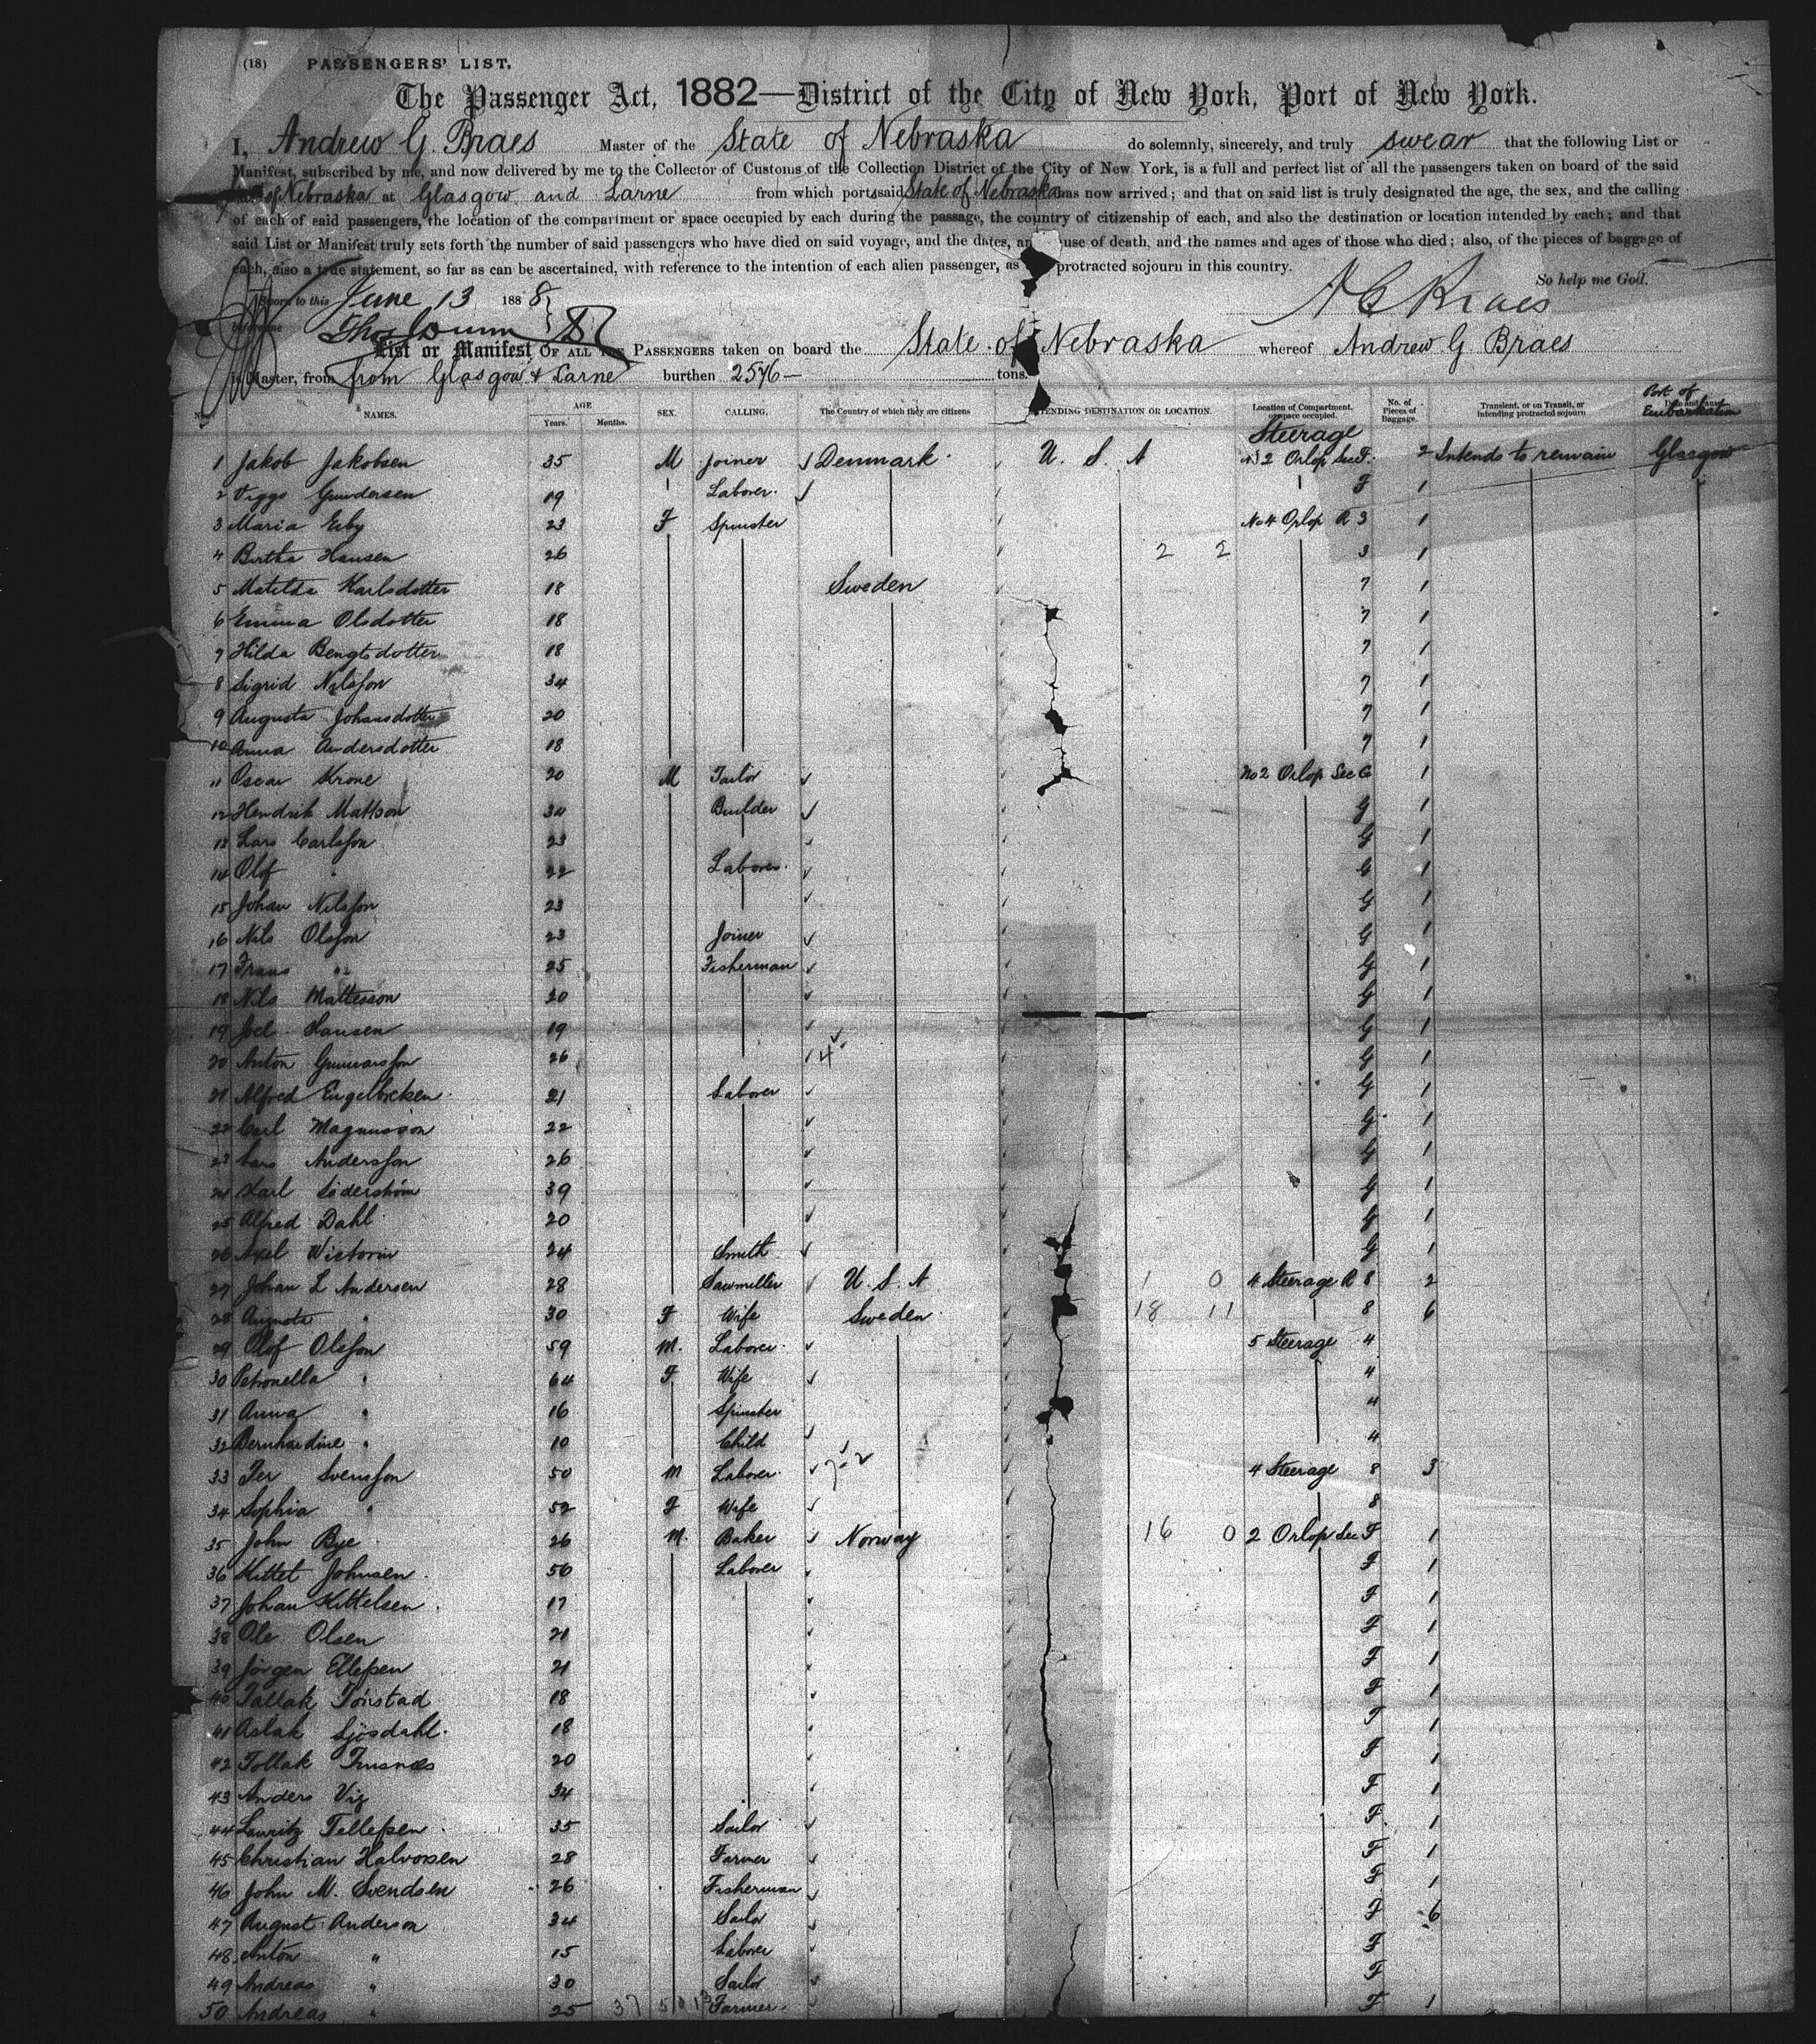 (18) PASSENGERS' LIST.
The Passenger Act, 1882—District of the City of New York, Port of New York.
I, Andrew G. Braes Master of the State of Nebraska do solemnly, sincerely, and truly swear that the following List or
Manifest, subscribed by me, and now delivered by me to the Collector of Customs of the Collection District of the City of New York, is a full and perfect list of all the passengers taken on board of the said
of Nebraska at Glasgow and Larne from which port said State of Nebraska has now arrived; and that on said list is truly designated the age, the sex, and the calling
of each of said passengers, the location of the compartment or space occupied by each during the passage, the country of citizenship of each, and also the destination or location intended by each; and that
said List or Manifest truly sets forth the number of said passengers who have died on said voyage, and the dates, an use of death, and the names and ages of those who died; also, of the pieces of baggage of
each, also a true statement, so far as can be ascertained, with reference to the intention of each alien passenger, as protracted sojourn in this country.
So help me God.
Sworn to this June 13 1888
before me Thos Dunn
A G Braes
List or Manifest OF ALL THE PASSENGERS taken on board the State of Nebraska whereof Andrew G Braes
is Master, from from Glasgow & Larne burthen 2576 — tons.
No. NAMES. AGE Years. Months. SEX. CALLING. The Country of which they are citizens INTENDING DESTINATION OR LOCATION. Location of Compartment, or space occupied. No. of Pieces of Baggage. Transient, or on Transit, or Intending protracted sojourn Port of Embarkation
Steerage
1 Jakob Jakobsen 35 M Joiner Denmark U. S. A No 2 Orlop Sec F. 2 Intends to remain Glasgow
2 Viggo Gundersen 19 Laborer F 1
3 Maria Erby 23 F Spinster No 4 Orlop R 3 1
4 Bertha Hansen 26 2 2 3 1
5 Matilda Karlsdotter 18 Sweden 7 1
6 Emma Olsdotter 18 7 1
7 Hilda Bengtsdotter 18 7 1
8 Sigrid Nilsson 34 7 1
9 Augusta Johansdotter 20 7 1
10 Anna Andersdotter 18 7 1
11 Oscar Krone 20 M Tailor No 2 Orlop Sec G 1
12 Hendrik Mattson 34 Builder G 1
13 Lars Carlsson 23 G 1
14 Olof " 22 Laborer G 1
15 Johan Nilsson 23 G 1
16 Nils Olsson 23 Joiner G 1
17 Frans " 25 Fisherman G 1
18 Nils Mattesson 20 G 1
19 Joel Hansen 19 G 1
20 Anton Gunnarsson 26 4 G 1
21 Alfred Engelbreken 21 Laborer G 1
22 Carl Magnusson 22 G 1
23 Lars Andersson 26 G 1
24 Karl Söderström 39 G 1
25 Alfred Dahl 20 G 1
26 Axel Wictorin 24 Smith G 1
27 Johan L Andersen 28 Sawmiller U. S. A 1 0 4 Steerage R 8 2
28 Augusta " 30 F Wife Sweden 18 11 8 6
29 Olof Olsson 59 M. Laborer 5 Steerage 4
30 Petronella " 64 F Wife 4
31 Anna " 16 Spinster 4
32 Bernhardine " 10 Child 4
33 Per Svensson 50 M Laborer 4 Steerage 8 3
34 Sophia " 52 F Wife 8
35 John Bye 26 M. Baker Norway 16 0 2 Orlop Sec F 1
36 Kittel Johnsen 56 Laborer F 1
37 Johan Kittelsen 17 F 1
38 Ole Olsen 21 F 1
39 Jörgen Ellefsen 21 F 1
40 Tallak Tönstad 18 F 1
41 Aslak Sjösdahl 18 F 1
42 Tollak Trusnæs 20 F 1
43 Anders Vig 34 F 1
44 Lauritz Tellefsen 35 Sailor F 1
45 Christian Halvorsen 28 Farmer F 1
46 John M. Svendsen 26 Fisherman F 1
47 August Anderson 34 Sailor F 6
48 Anton " 15 Laborer F
49 Andreas " 30 Sailor F
50 Andreas " 25 37 50 13 Farmer F 1